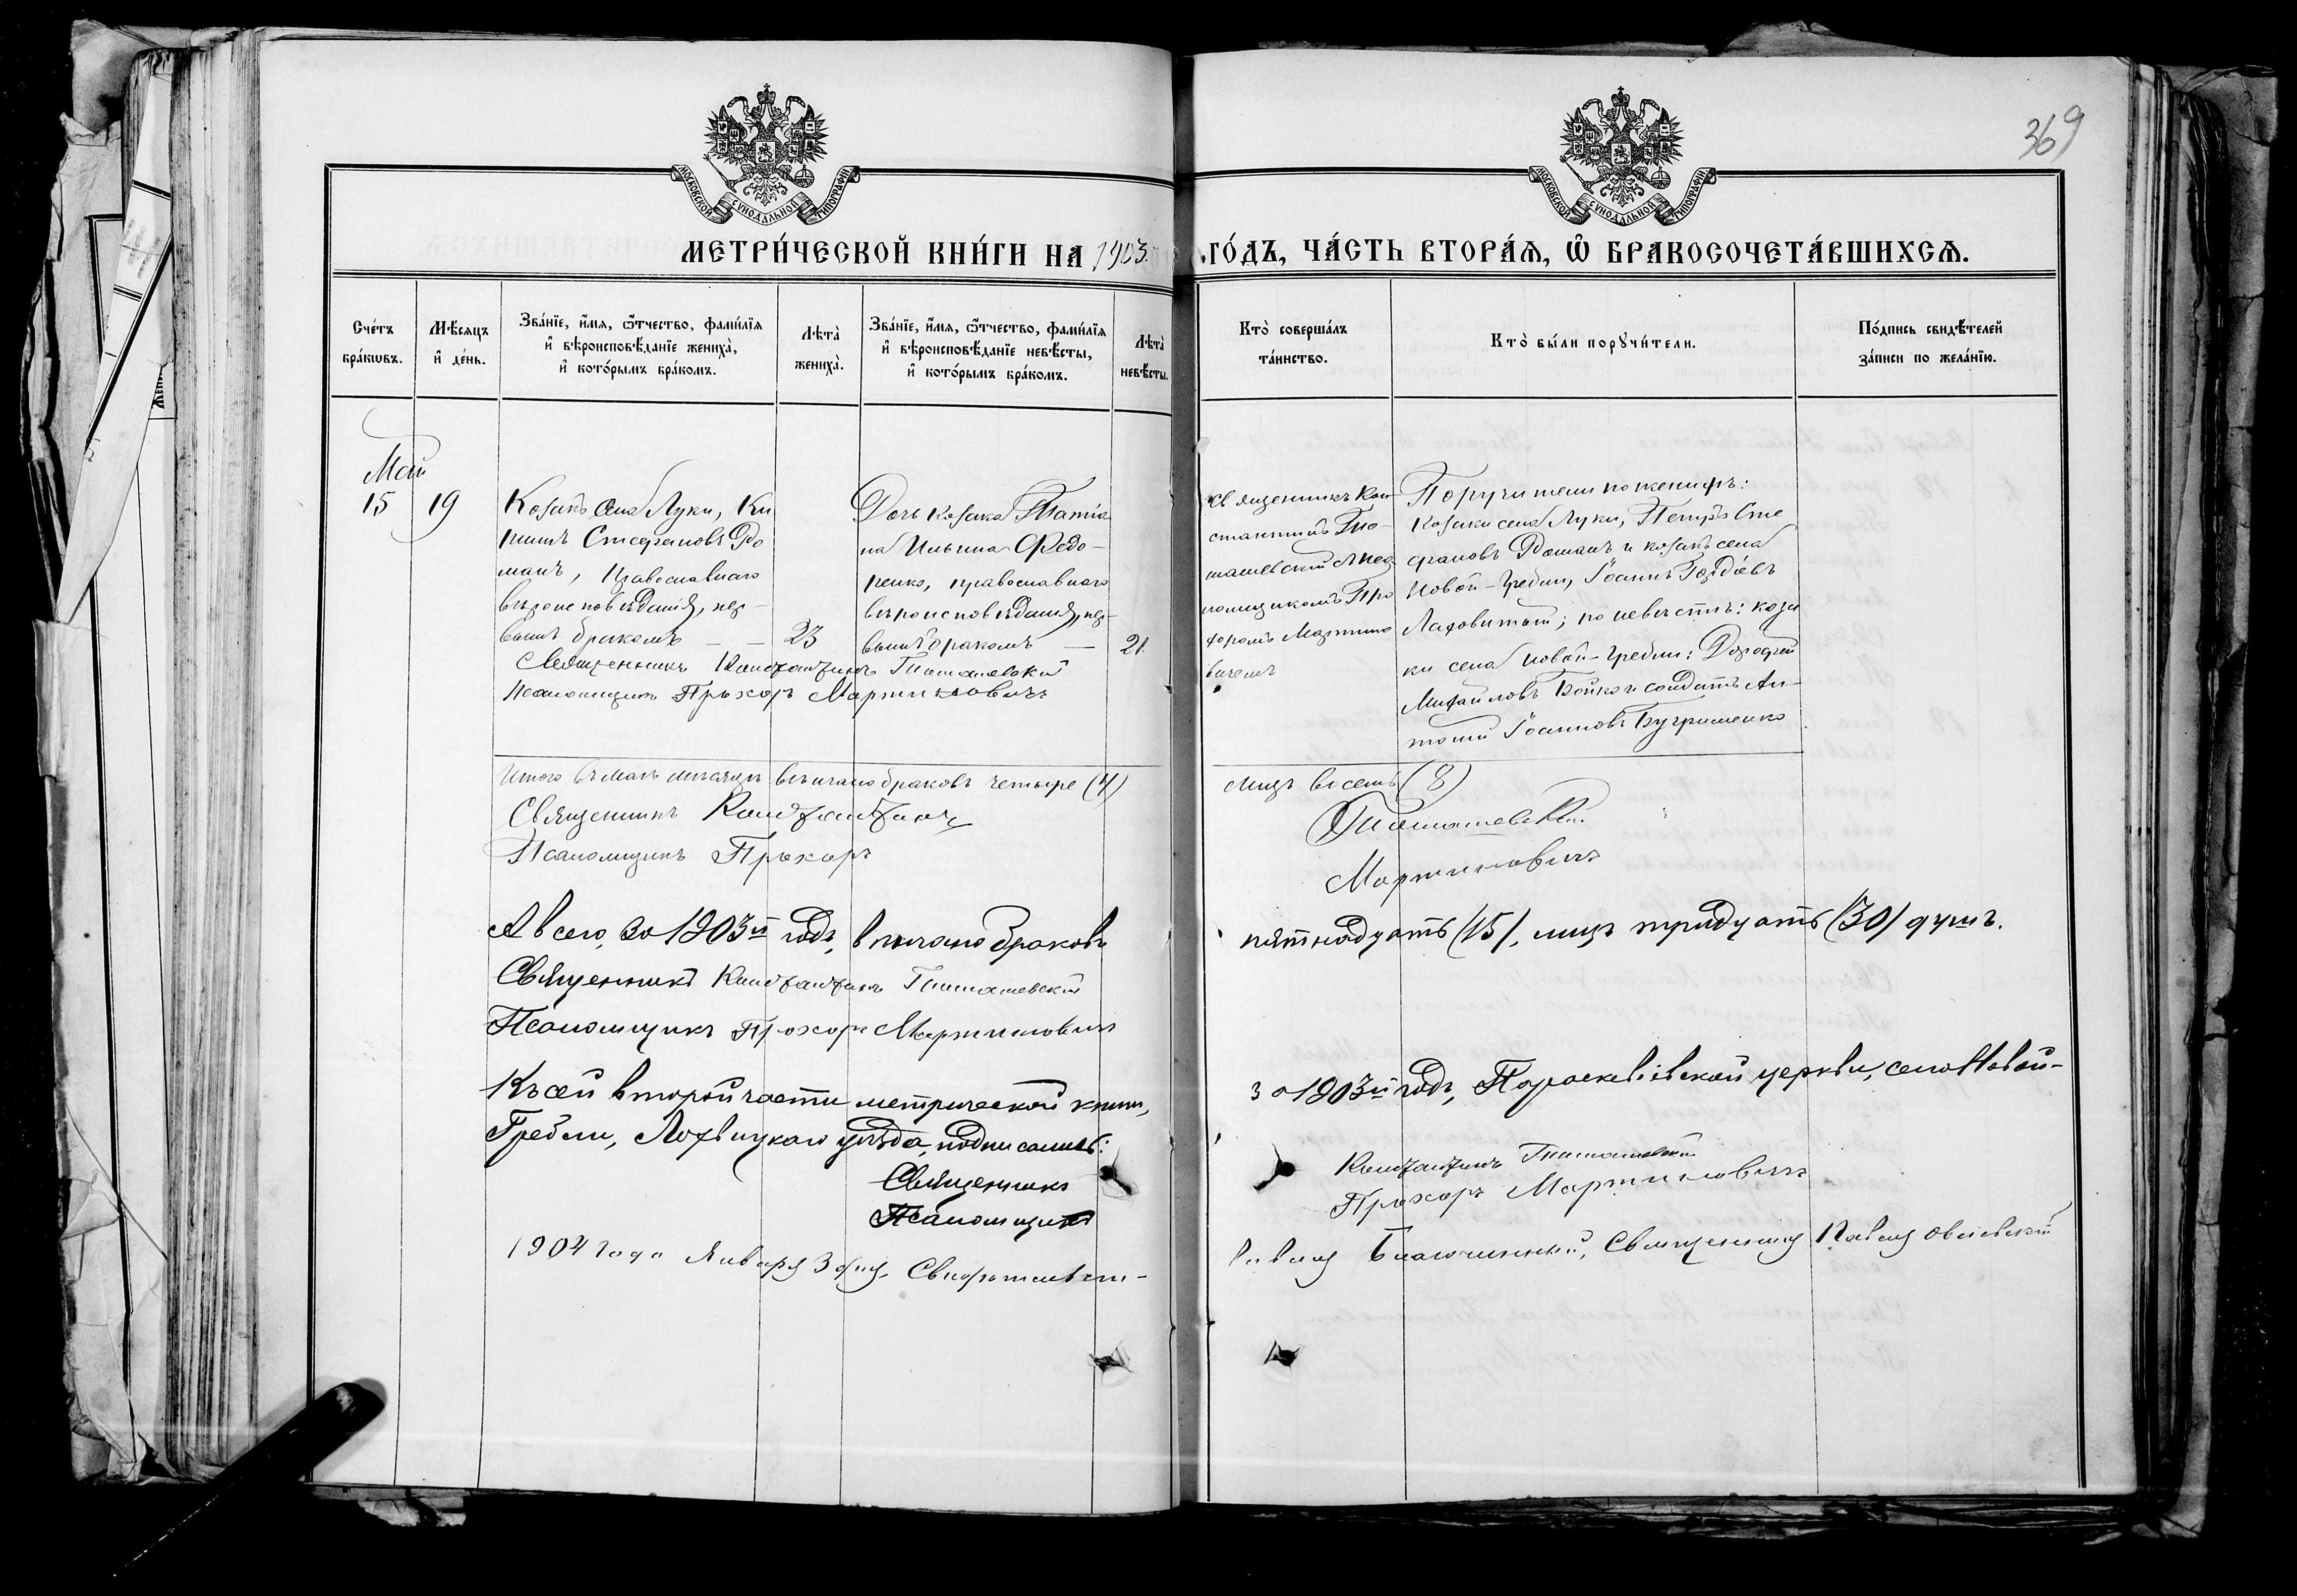 369
МОСКОВСКОЙ СѴНОДАЛЬНОЙ ТИПОГРАФІИ
МОСКОВСКОЙ СѴНОДАЛЬНОЙ ТИПОГРАФІИ
МЕТРИ́ЧЕСКОЙ КНИ́ГИ НА 1903 ГО́ДЪ, ЧА́СТЬ ВТОРА́Я, Ѽ БРАКОСОЧЕТА́ВШИХСѦ.
Сче́тъ
бра́кѡвъ.
Мѣ́сяцъ
и҆ де́нь.
Зва́нїе, и҆́мѧ, ѻ҆́тчество, фами́лїѧ
и҆ вѣроисповѣ́данїе жениха̀,
и҆ кото́рымъ бра́комъ.
Лѣта̀
жениха̀.
Зва́нїе, и҆́мѧ, ѻ҆́тчество, фами́лїѧ
и҆ вѣроисповѣ́данїе невѣ́сты,
и҆ кото́рымъ бра́комъ.
Лѣта̀
невѣ́сты.
Кто̀ соверша́лъ
та́инство.
Кто̀ бы́ли порꙋчи́тели.
По́дпись свидѣ́телей
за́писи по жела́нїю.
Май
15
19
Козакъ села Луки, Ки
риллъ Стефановъ Ро
манъ, православнаго
вѣроисповѣданія, пер-
вымъ бракомъ
23
Дочь козака Татіа
на Ильина Федо-
ренко, православнаго
вѣроисповѣданія, пер-
вымъ бракомъ
21.
Священникъ Константинъ
Псаломщикъ Прохоръ Мартиновичъ
Священникъ Кон-
стантинъ
съ псал
ломщикомъ Про
хоромъ Мартино
вичемъ
Поручители по женихѣ:
козаки села Луки, Петръ Сте
фановъ Романъ и козакъ села
Новой-Гребли, Іоаннъ
по невѣстѣ: коза
ки села Новой-Гребли: Дорофей
Михайловъ Бойко и солдатъ Ан-
тоній Іоанновъ
Итого въ маѣ мѣсяцѣ вѣнчано браковъ четыре (4)
лицъ восемь (8)
Священникъ Константинъ
Псаломщикъ Прохоръ
Мартиновичъ
А всего, за 1903й годъ, вѣнчано браковъ
пятнадцать (15), лицъ тридцать (30) душъ.
Священникъ Константинъ
Псаломщикъ Прохоръ Мартиновичъ
Къ сей второй части метрической книги,
за 1903й годъ, Параскевіевской церкви, села Новой-
Гребли, Лохвицкаго уѣзда, подписались:
Священникъ
Константинъ
Псаломщикъ
Прохоръ Мартиновичъ
1904 года Января 3 дня. Свидѣтельст-
вовалъ Благочинный, Священникъ Павелъ